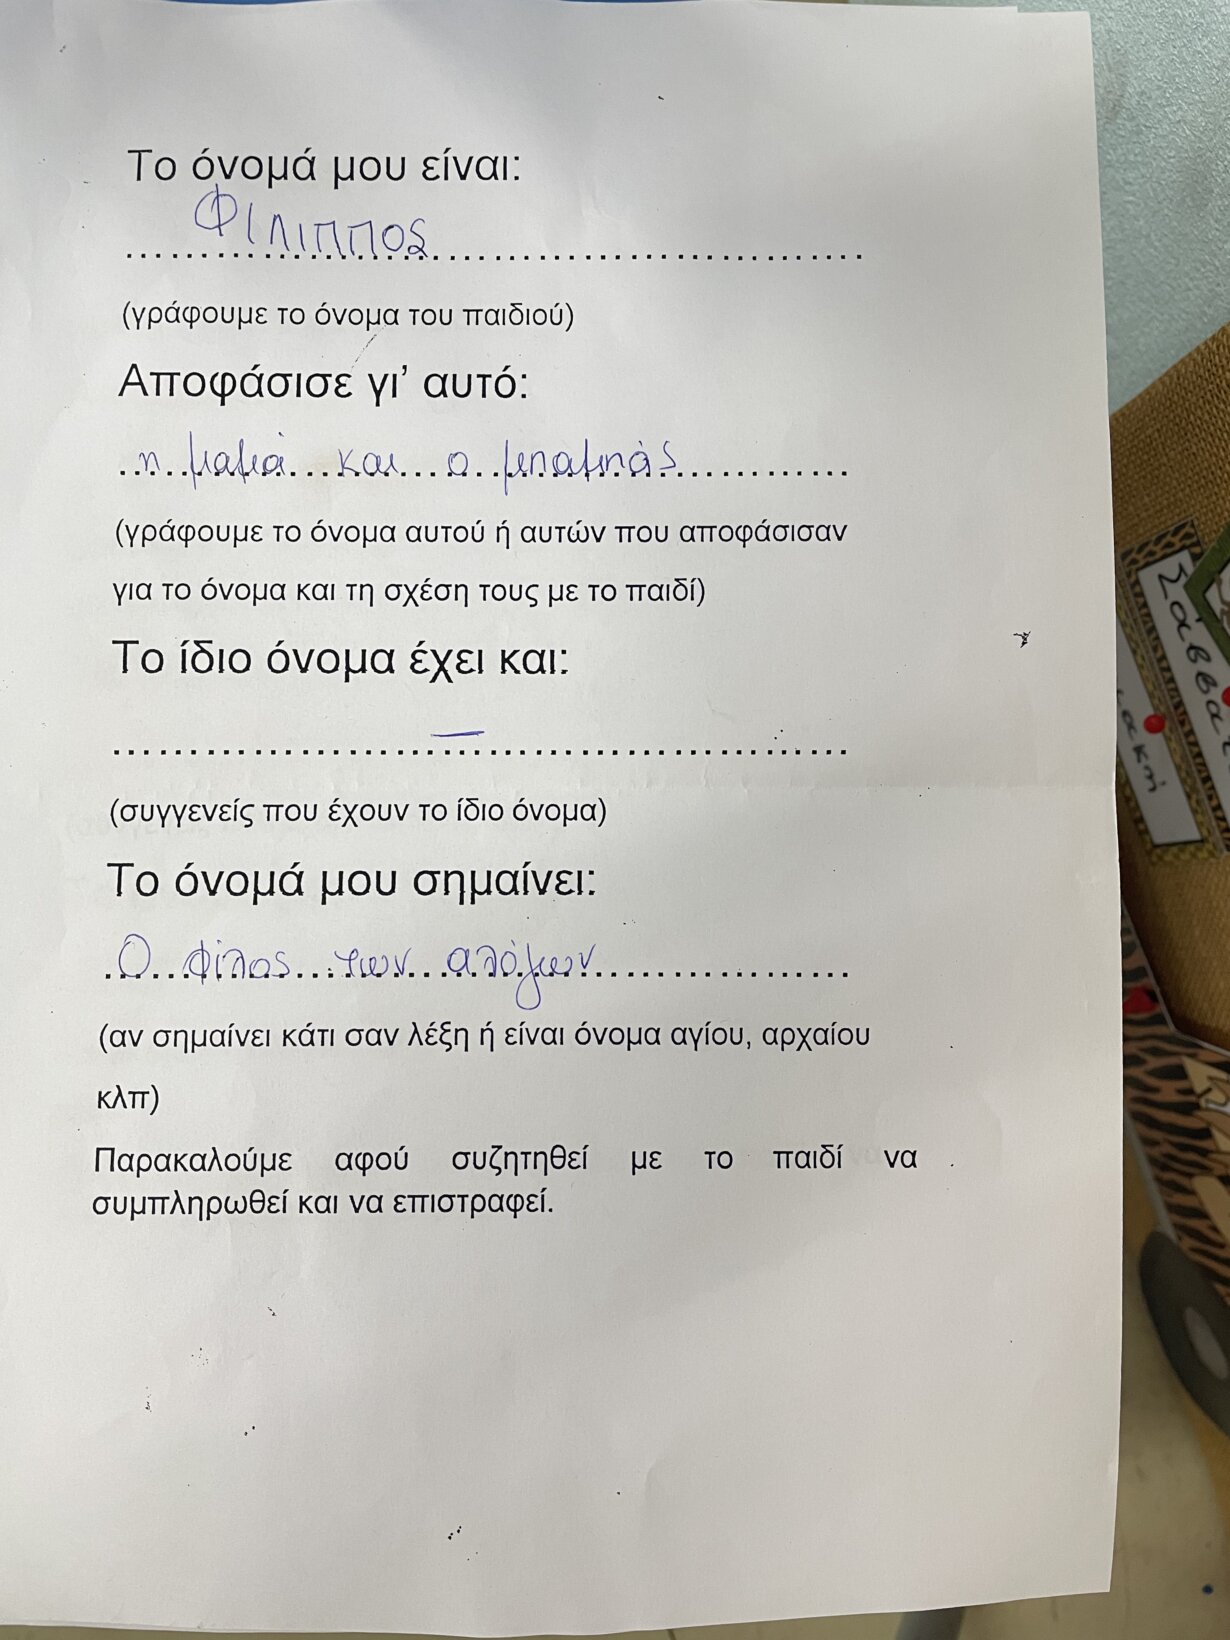 Το όνομά μου είναι:
ΦΙΛΙΠΠΟΣ
(γράφουμε το όνομα του παιδιού)
Αποφάσισε γι’ αυτό:
η μαμά και ο μπαμπάς
(γράφουμε το όνομα αυτού ή αυτών που αποφάσισαν
για το όνομα και τη σχέση τους με το παιδί)
Το ίδιο όνομα έχει και:
—
(συγγενείς που έχουν το ίδιο όνομα)
Το όνομά μου σημαίνει:
Ο φίλος των αλόγων
(αν σημαίνει κάτι σαν λέξη ή είναι όνομα αγίου, αρχαίου
κλπ)
Παρακαλούμε αφού συζητηθεί με το παιδί να
συμπληρωθεί και να επιστραφεί.